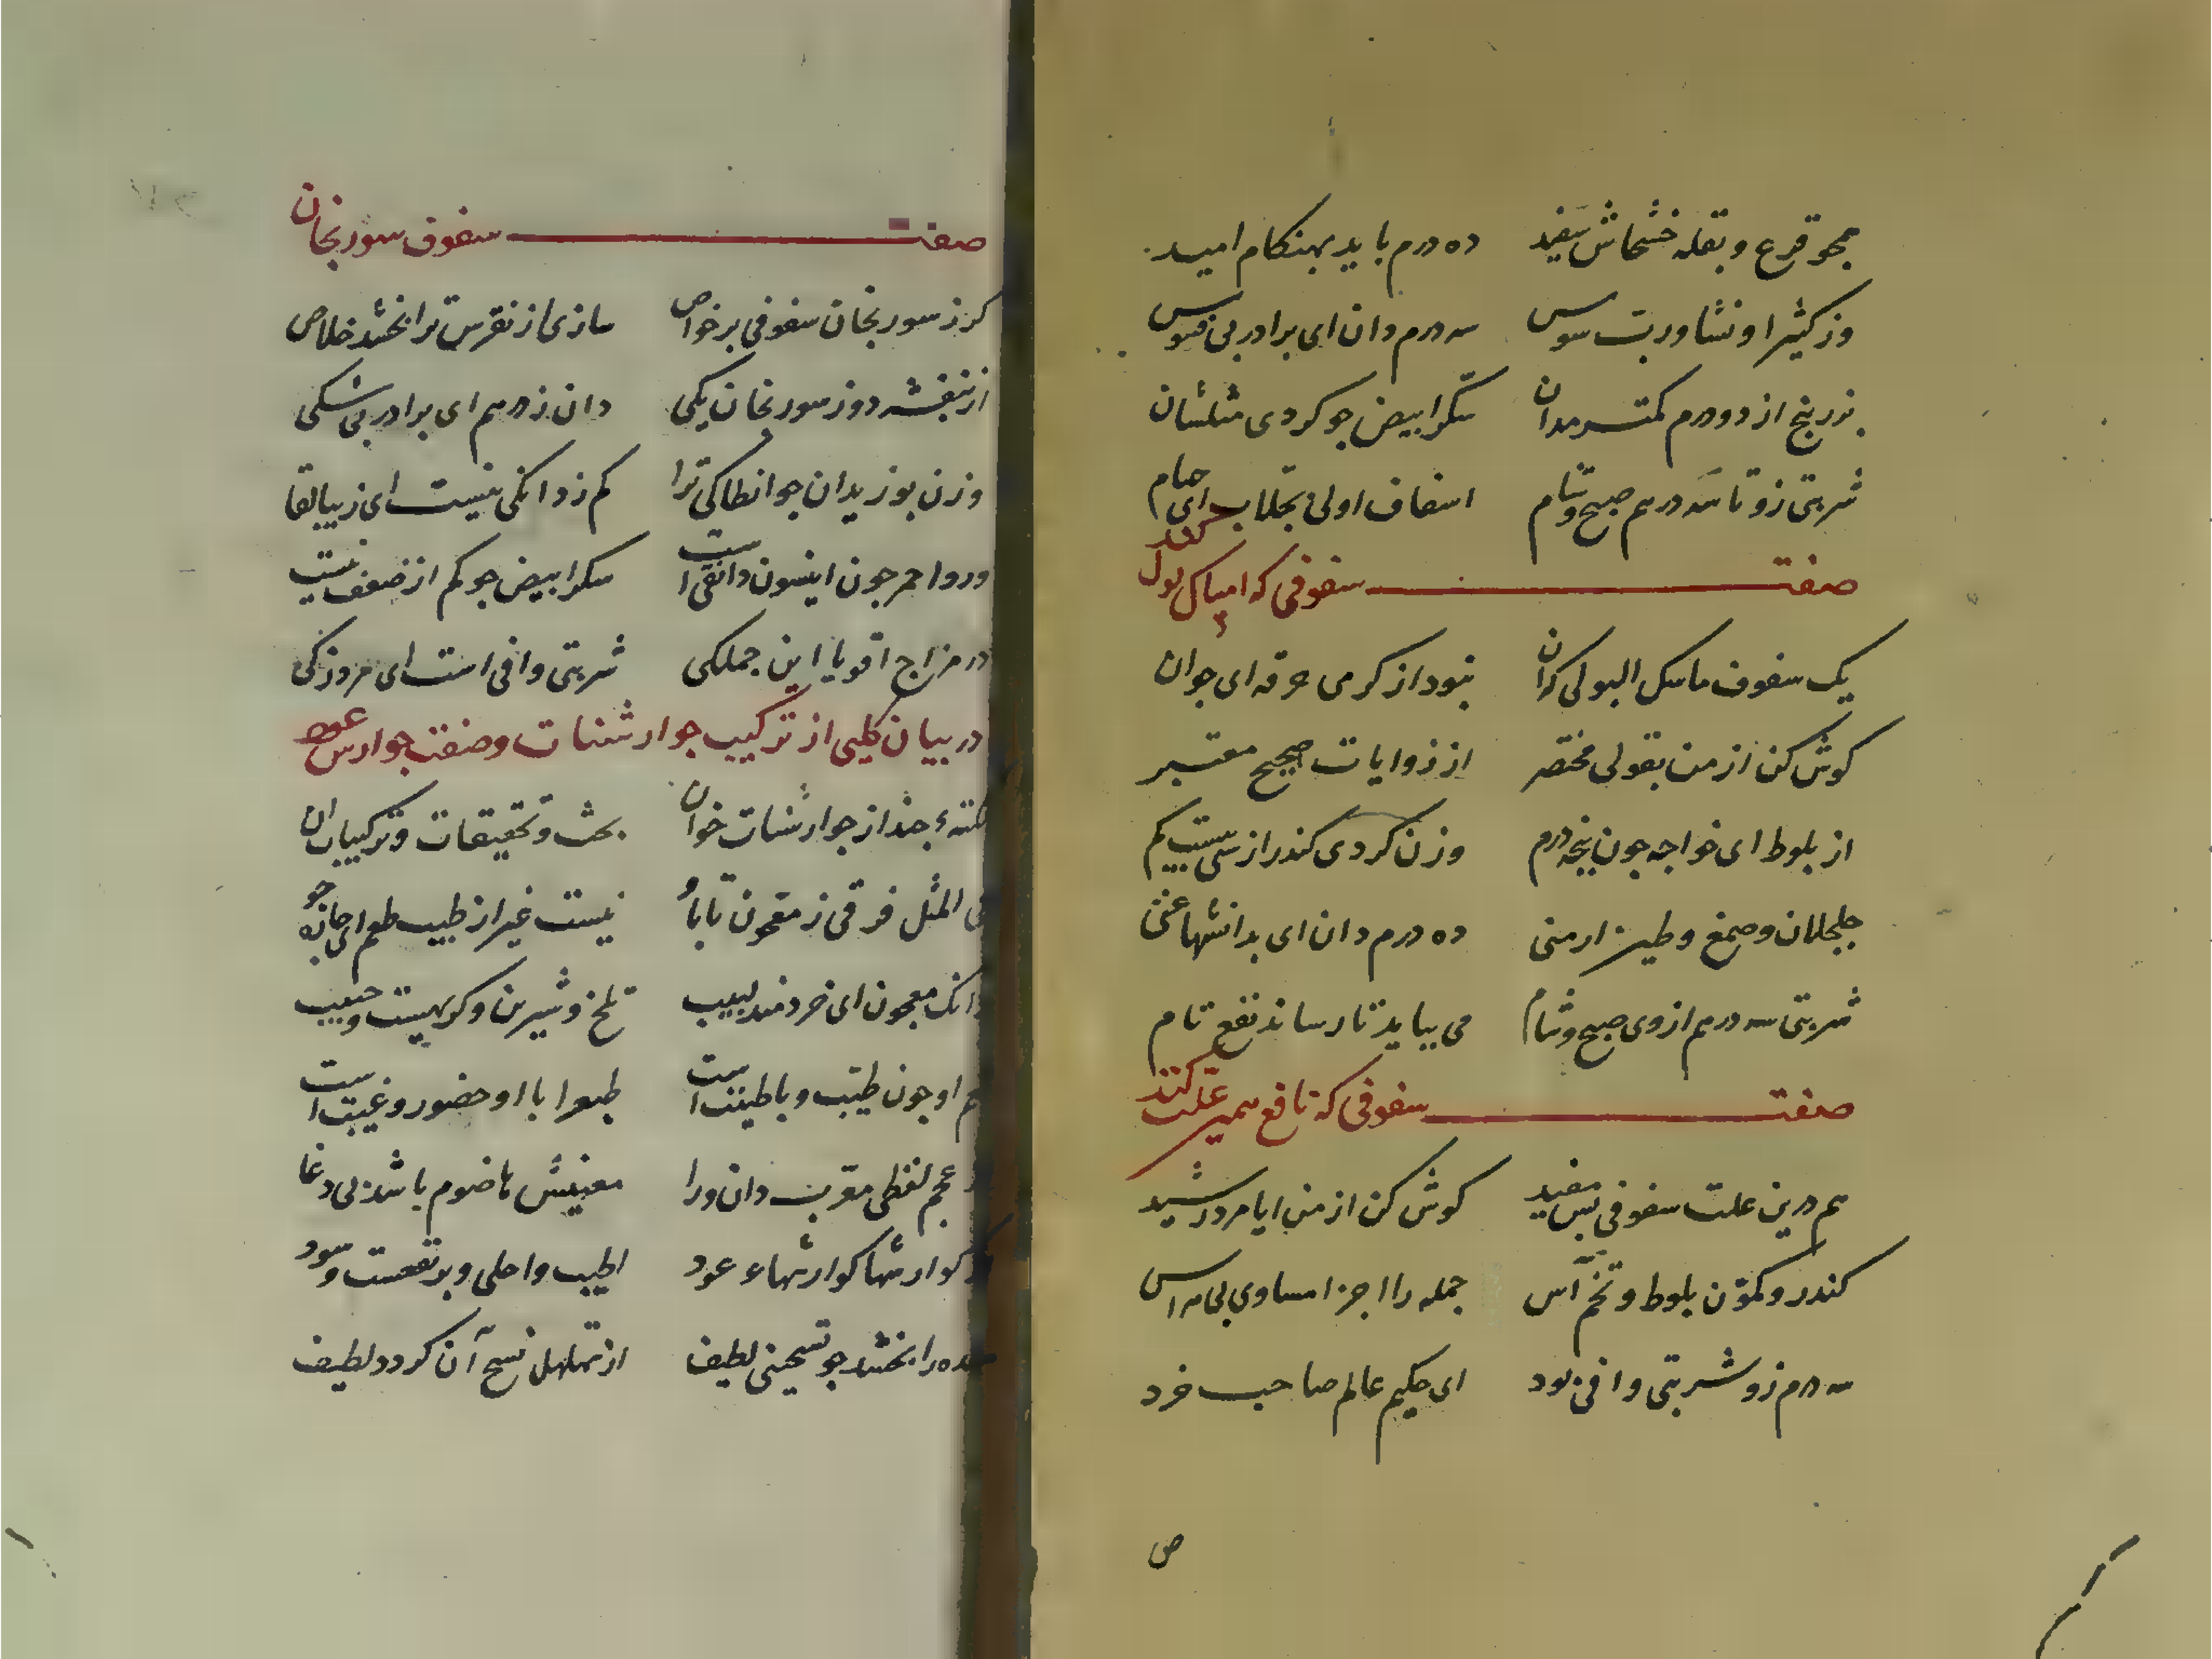 همچو قرع و بقله خشخاش سفید ده درم باید بهنکام امید
وز کثیرا و نشا و رب سوس سه درم دان ای برادر بی فسوس
بزر بنج از دو درم کمتر مدان سکر ابیض جو کردی مثلشان
شربتی زو تا سه درهم صبح و شام اسفاف اولی بجلاب ای همام
صفت سفوفی که امساک بول کند
یک سفوف ماسک البولی که آن نبود از کرمی حرقه ای جوان
کوش کن از من بقولی مختصر از روایات صحیح معتبر
از بلوط ای خواجه جون پنجه درم وزن کردی کندر از سی نیست کم
جلجلان و صمغ و طین ارمنی ده درم دان ای بدانشها غنی
شربتی سه درم از وی صبح و شام می بباید تا رساند نفع تام
صفت سفوفی که نافع همین علت کنند
هم درین علت سفوفی بس مفید کوش کن از من ایا مرد رشید
کندر و کمون بلوط و تخم آس جمله را اجزا مساوی بی
سه درم زو شربتی وافی بود ای حکیم عالم صاحب خرد
ص
صفت سفوف سورنجان
کر ز سورنجان سفوفی بر خواص سازی از نقرس ترا بخشد خلاص
از بنفشه دو ز سورنجان یکی دان ز درهم ای برادر بی شکی
وزن بوزیدان جو انطاکی ترا کم ز دانکی نیست ای زیبا لقا
ورد احمر جون انیسون دانقی است سکر ابیض جو کم از ضعف نیست
در مزاج اقویا این جملکی شربتی وافی است ای مرد زکی
در بیان کلیی از ترکیب جوارشنات و صفت جوارش عود
نکته‌ء جند از جوارشنات خوان بحث و تحقیقات و ترکیبات آن
فی المثل فرقی ز معجون تا باو نیست غیر از طیب طعم ای جاره جو
زانک معجون ای خردمند لبیب تلخ و شیرین و کریهست و حبیب
طعم او جون طیب و با طینت است طبع را با او حضور و غیبت است
عجم لفظی معرب دان ورا معنیش هاضوم باشد بی دغا
کوارشها کوارشهاء عود اطیب و احلی و بر نفعست و سود
معده را بخشد جو تسخینی لطیف از تهلهل نسج آن کردد لطیف